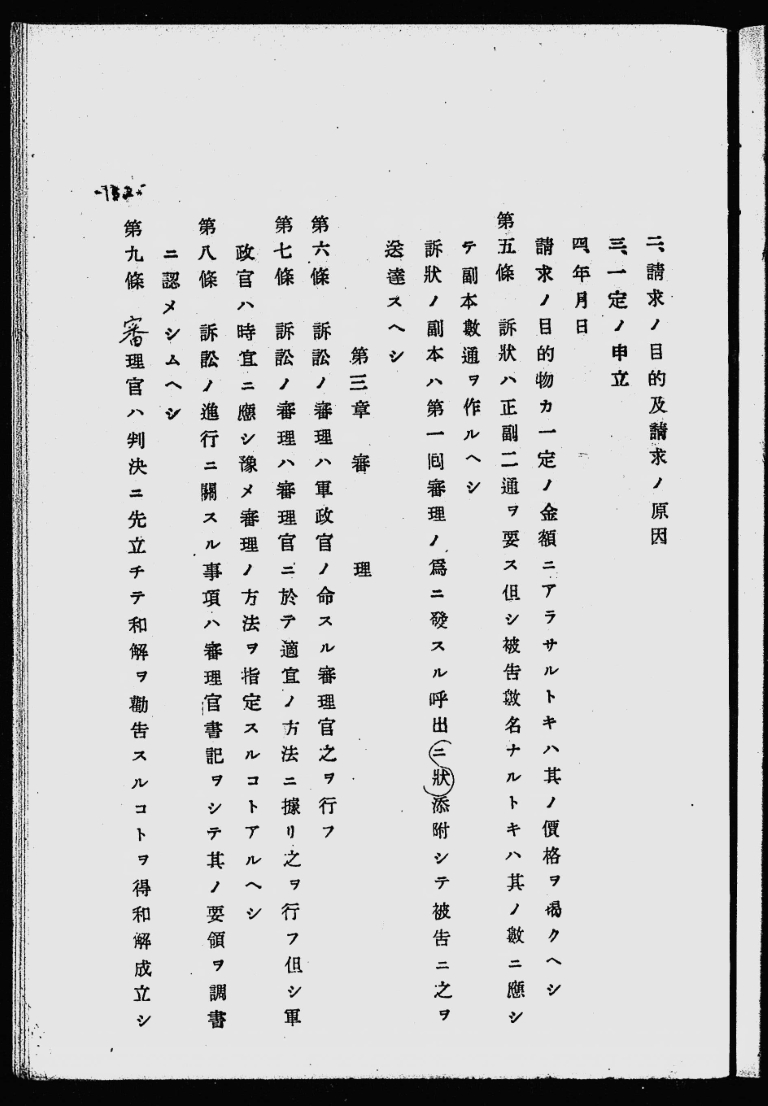 二、請求ノ目的及請求ノ原因
三、一定ノ申立
四、年月日
請求ノ目的物カ一定ノ金額ニアラサルトキハ其ノ價格ヲ揭クヘシ
第五條　訴狀ハ正副二通ヲ要ス但シ被告數名ナルトキハ其ノ數ニ應シ
テ副本數通ヲ作ルヘシ
訴狀ノ副本ハ第一回審理ノ爲ニ發スル呼出ニ狀添附シテ被告ニ之ヲ
送達スヘシ
第三章　審　理
第六條　訴訟ノ審理ハ軍政官ノ命スル審理官之ヲ行フ
第七條　訴訟ノ審理ハ審理官ニ於テ適宜ノ方法ニ據リ之ヲ行フ但シ軍
政官ハ時宜ニ應シ豫メ審理ノ方法ヲ指定スルコトアルヘシ
第八條　訴訟ノ進行ニ關スル事項ハ審理官書記ヲシテ其ノ要領ヲ調書
ニ認メシムヘシ
第九條　審理官ハ判決ニ先立チテ和解ヲ勸告スルコトヲ得和解成立シ